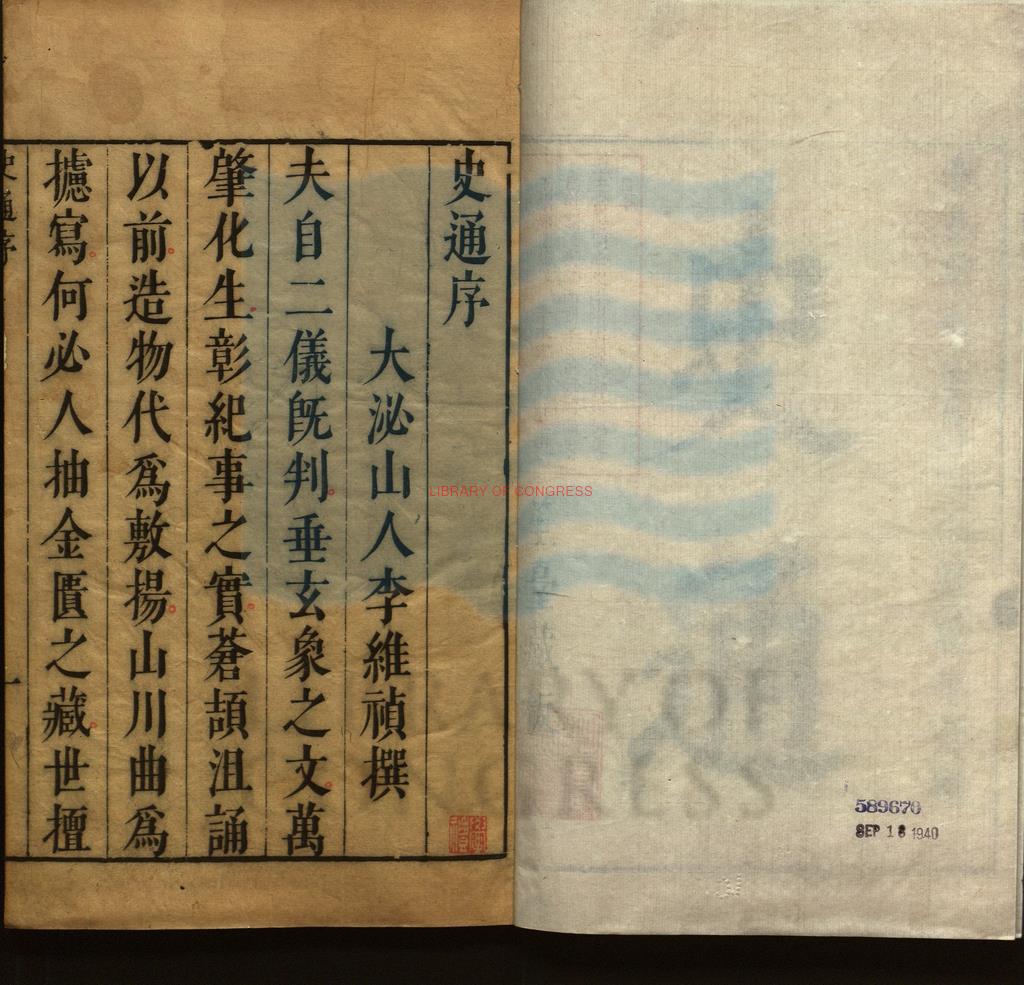 史通序
大泌山人李維禎撰
夫自二儀旣判垂玄象之文萬
肇化生彰紀事之實蒼頡沮誦
以前造物代爲敷揚山川曲爲
攄寫何必人抽金匱之藏世擅
史通序
一
LIBRARY OF CONGRESS
589670
SEP 18 1940